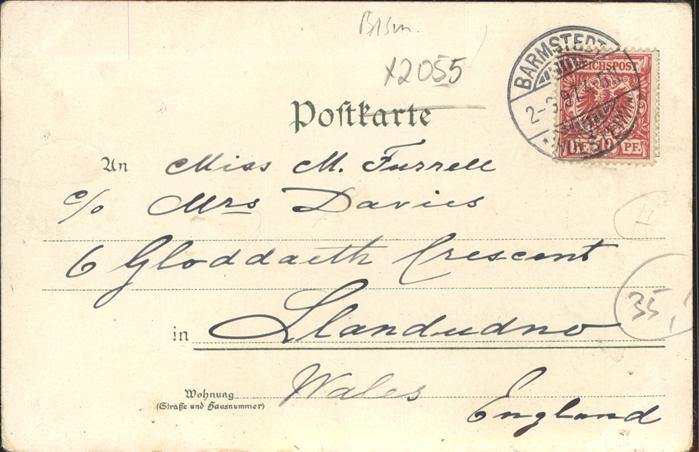 Bism.
x2055
BARMSTEDT
2-3.97.4-5N
REICHSPOST
10 PF. 10 PF.
Postkarte
An Miss M. Furrell
c/o Mrs Davies
6 Gloddaeth Crescent
in Llandudno
Wohnung
(Straße und Hausnummer)
Wales
England
H
35,